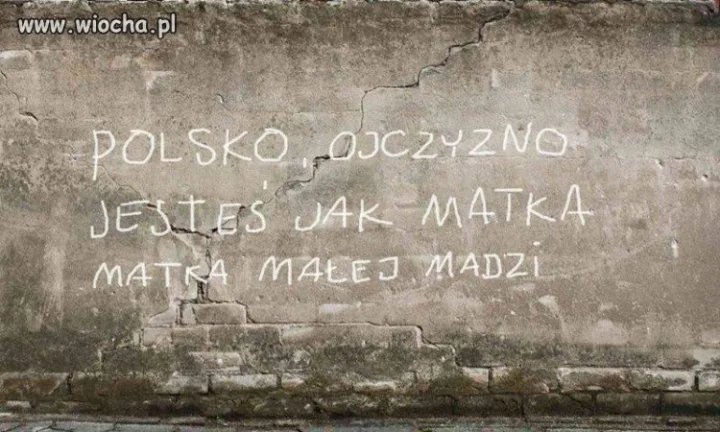 www.wiocha.pl
POLSKO, OJCZYZNO
JESTEŚ JAK MATKA
MATKA MAŁEJ MADZI